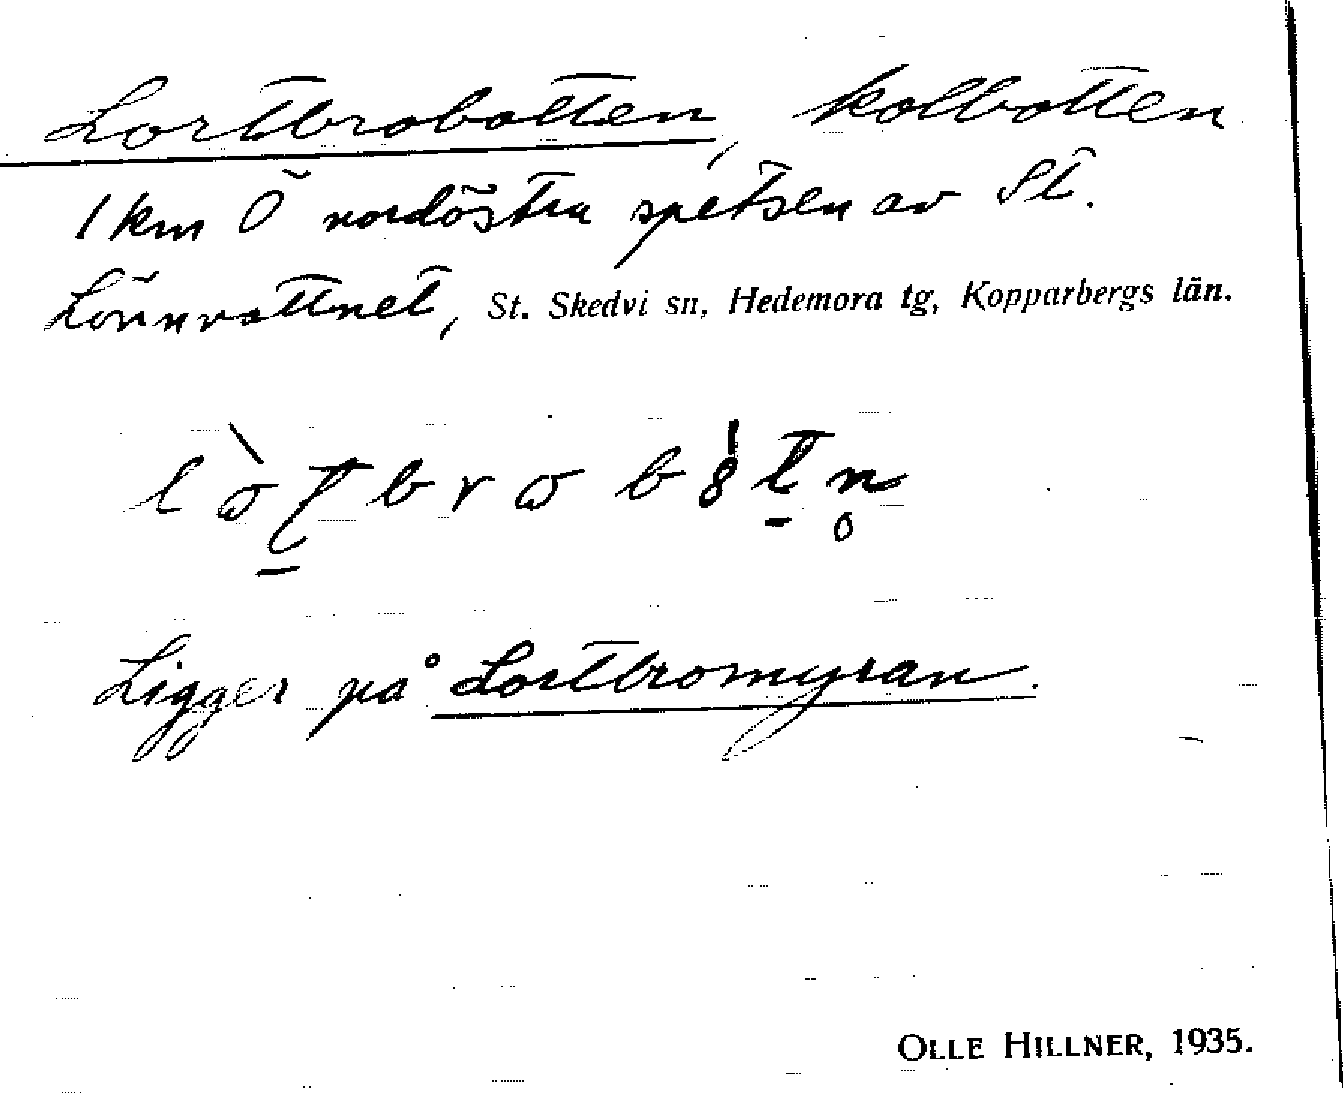 Lortbrobotten, kolbotten
1 km Ö nordöstra spetsen av St.
Lönnvattnet, St. Skedvi sn, Hedemora tg, Kopparbergs län.
Ligger på Lortbromyran.
OLLE HILLNER, 1935.